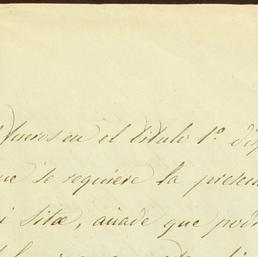 fueros en el titulo 1º
se requiere la presen
sita, añade que podr